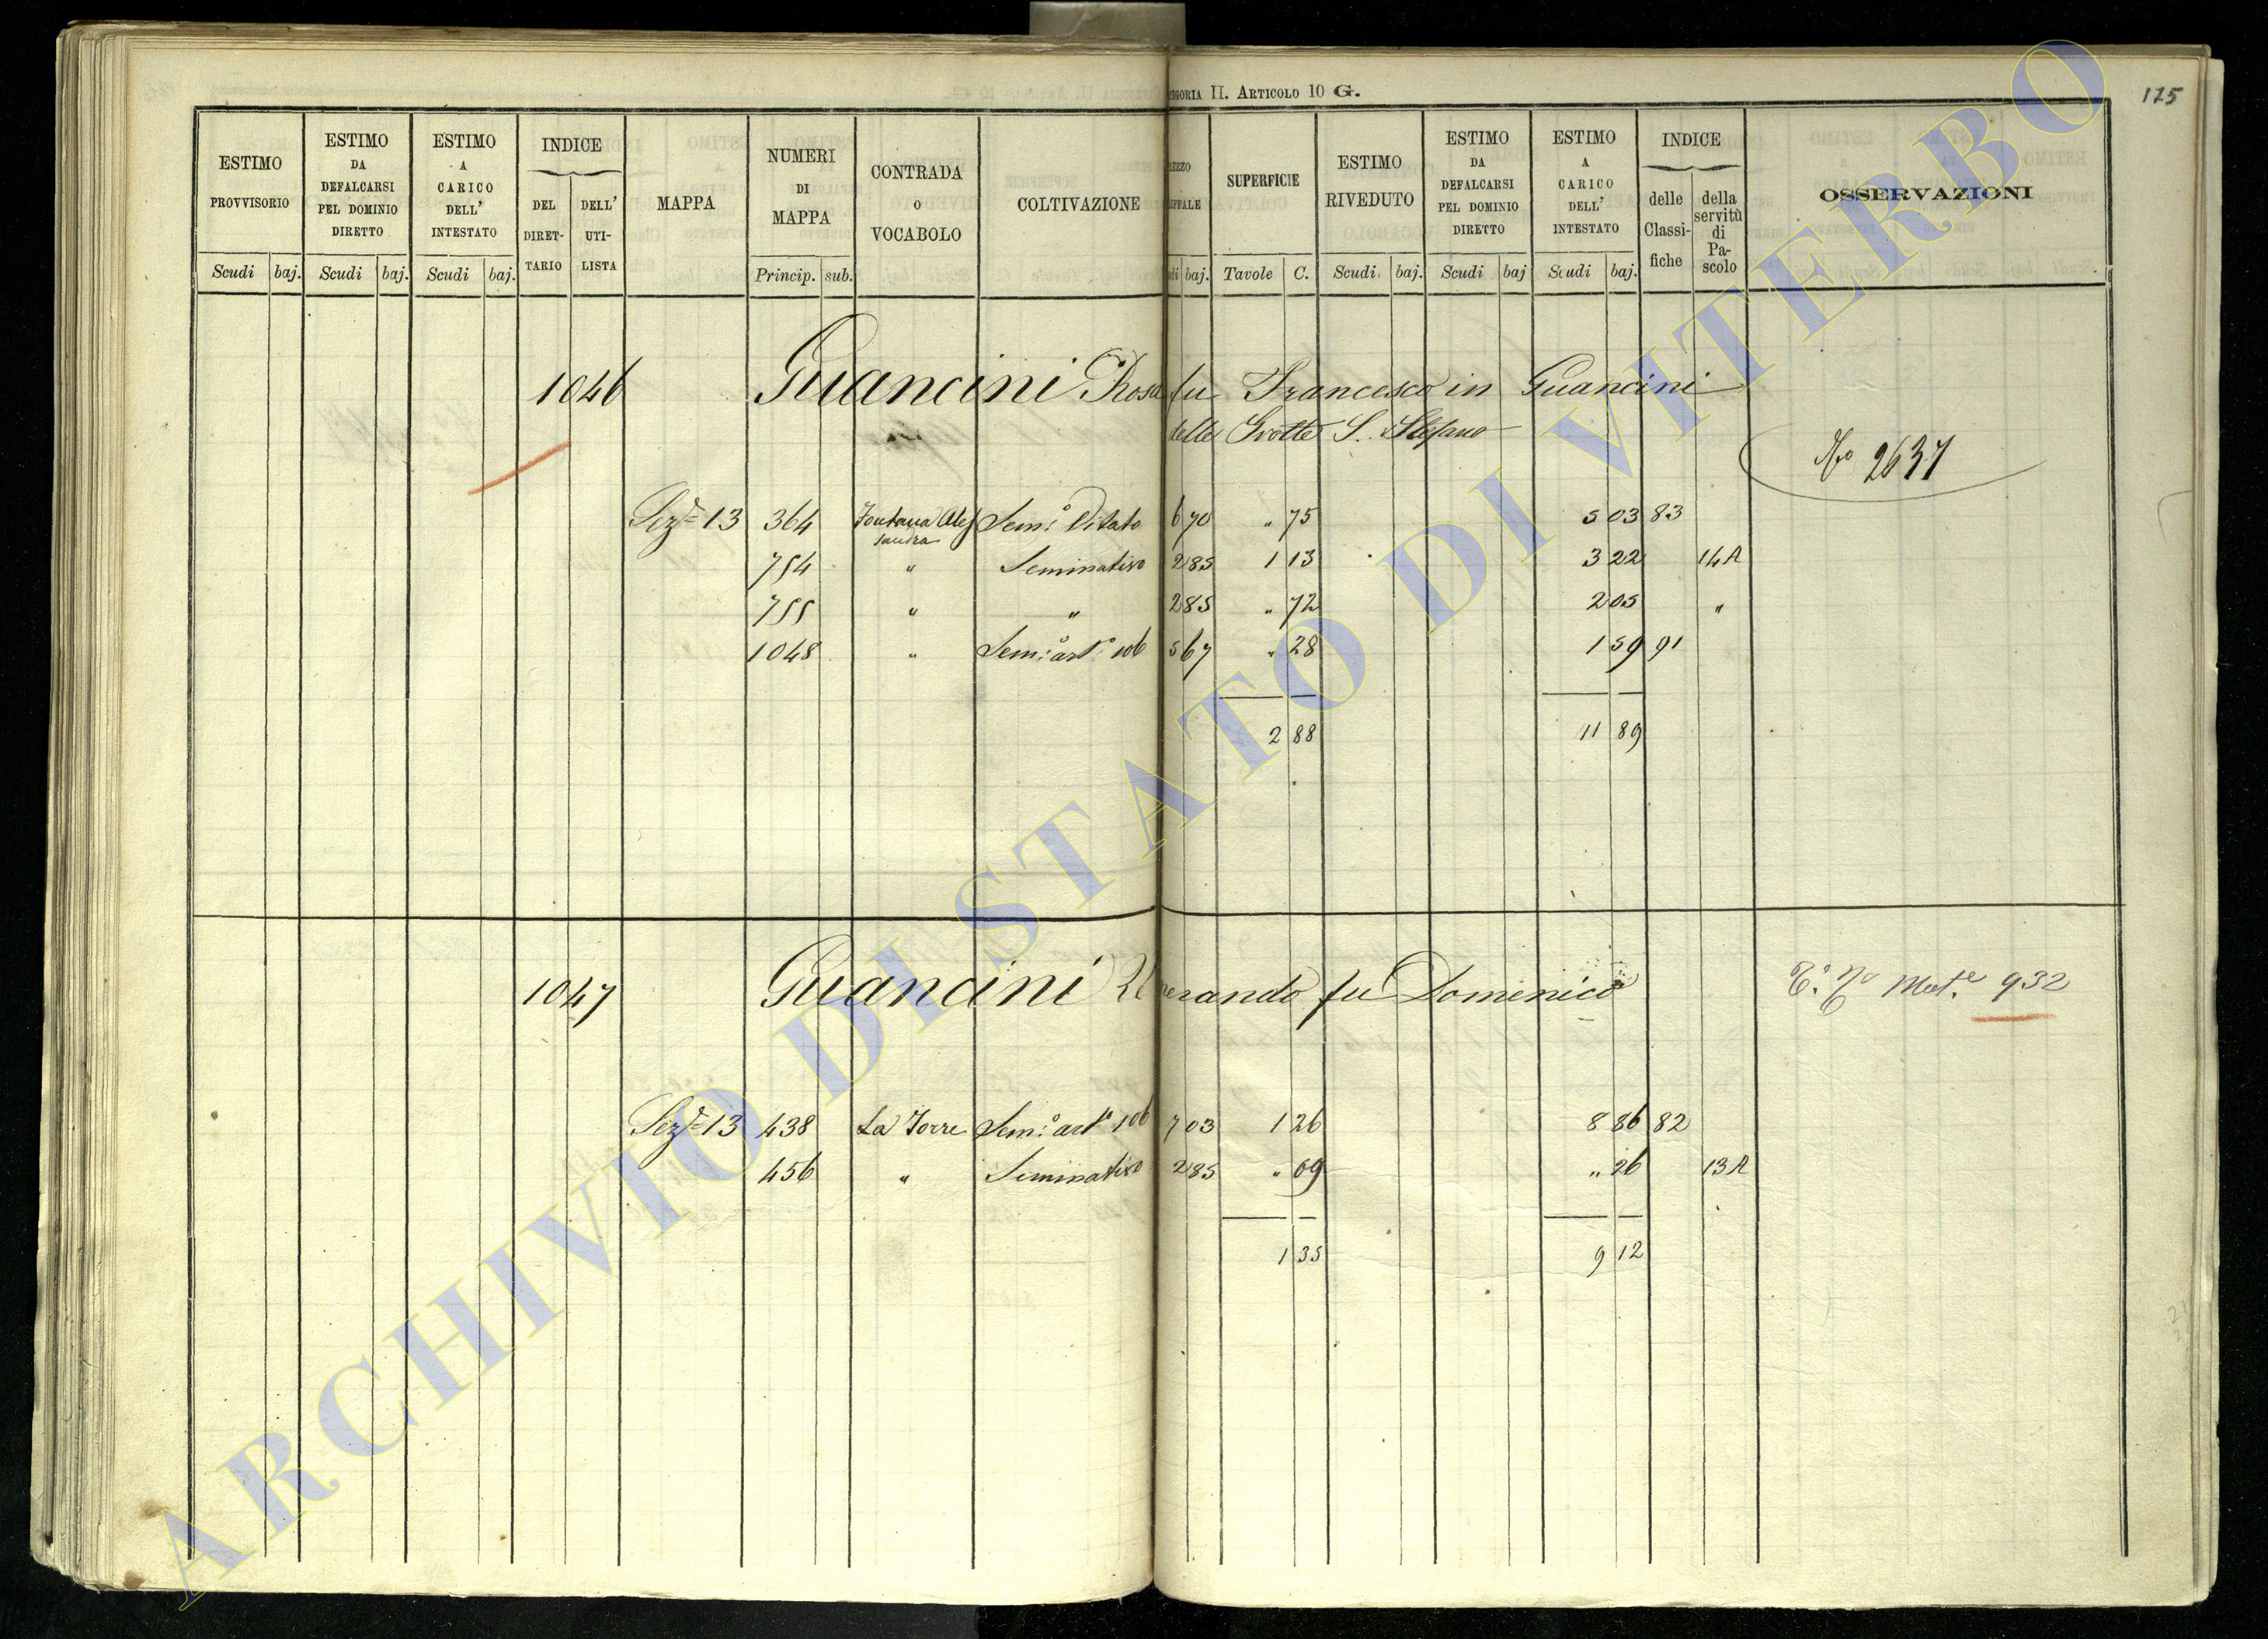 EGORIA II. ARTICOLO 10 G.
125
ESTIMO PROVVISORIO
Scudi baj.
ESTIMO DA DEFALCARSI PEL DOMINIO DIRETTO
Scudi baj.
ESTIMO A CARICO DELL' INTESTATO
Scudi baj.
INDICE
DEL DIRET-TARIO
DELL' UTI-LISTA
MAPPA
NUMERI DI MAPPA
Princip. sub.
CONTRADA O VOCABOLO
COLTIVAZIONE
REZZO
IFFALE
di baj.
SUPERFICIE
Tavole C.
ESTIMO RIVEDUTO
Scudi. baj.
ESTIMO DA DEFALCARSI PEL DOMINIO DIRETTO
Scudi baj
ESTIMO A CARICO DELL' INTESTATO
Scudi baj.
INDICE
delle Classi-fiche
della servitù di Pa-scolo
OSSERVAZIONI
1046 Guancini Rosa fu Francesco in Guancini
delle Grotte S. Stefano
No 2637
Seze 13 364 Fontana Ales sandra Sem:o Vitato 6 70 " 75 5 03 83
754 " Seminativo 2 85 1 13 3 22 14A
755 " " 2 85 " 72 2 05 "
1048 " Sem:o art.o 106 5 67 " 28 1 59 91
2 88 11 89
1047 Guancini erando fu Domenico
Mat.e 932
Seze 13 438 La Torre Sem:o art.o 106 7 03 1 26 8 86 82
456 " Seminativo 2 85 " 09 " 26 13A
1 35 9 12
ARCHIVIO DI STATO DI VITERBO